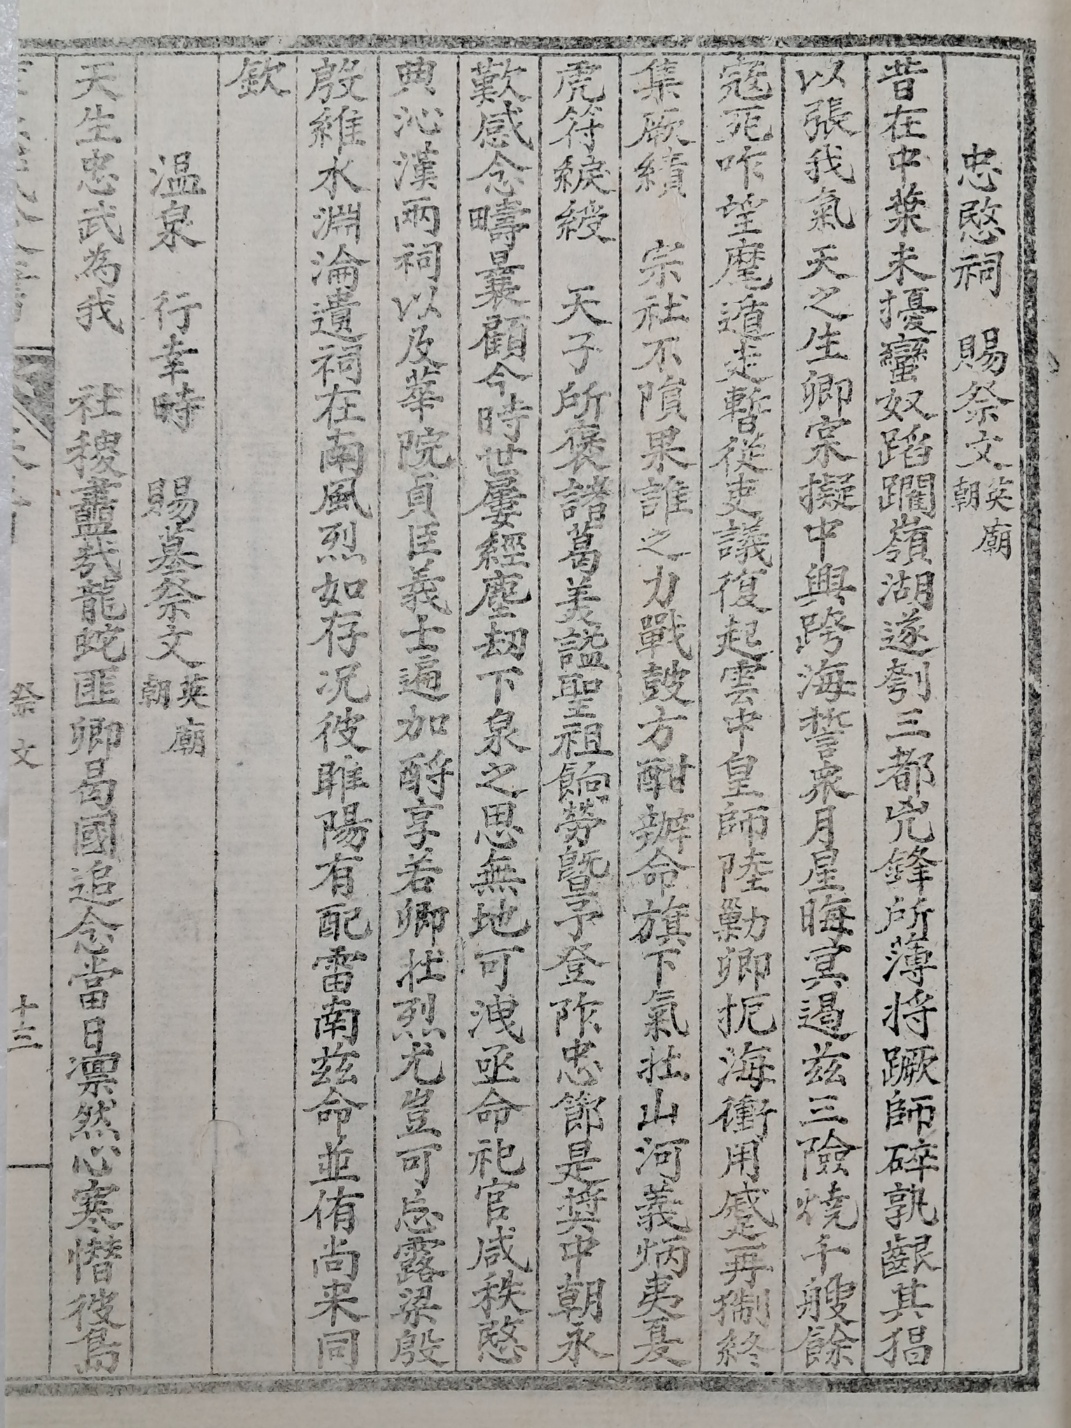 忠愍祠　賜祭文英廟朝
昔在中葉未擾蠻奴蹈躙嶺湖遂刳三都兇鋒所薄將蹶師碎孰齦其猖
以張我氣天之生卿寀擬中興跨海誓衆月星晦冥遏茲三險燒千艘餘
寇死咋望麾遁走暫從吏議復起雲中皇師陸勦卿扼海衝用蹙再猘終
集厥績　宗社不隕果誰之力戰鼓方酣辦命旗下氣壯山河義炳夷夏
虎符綟綬　天子所褒諸葛美諡聖祖餉勞曁予登阼忠節是奬中朝永
歎感念疇曩顧今時世屢經塵刼下泉之思無地可洩亟命祀官咸秩愍
典沁漢兩祠以及華院貞臣義士遍加酹享若卿壯烈尤豈可忘露梁殷
殷維水淵淪遺祠在南風烈如存况彼睢陽有配雷南茲命並侑尚来同
欽
温泉　行幸時　賜墓祭文英廟朝
天生忠武為我　社稷蠢玆龍蛇匪卿曷國追念當日凛然心寒憯彼島
祭文
十三